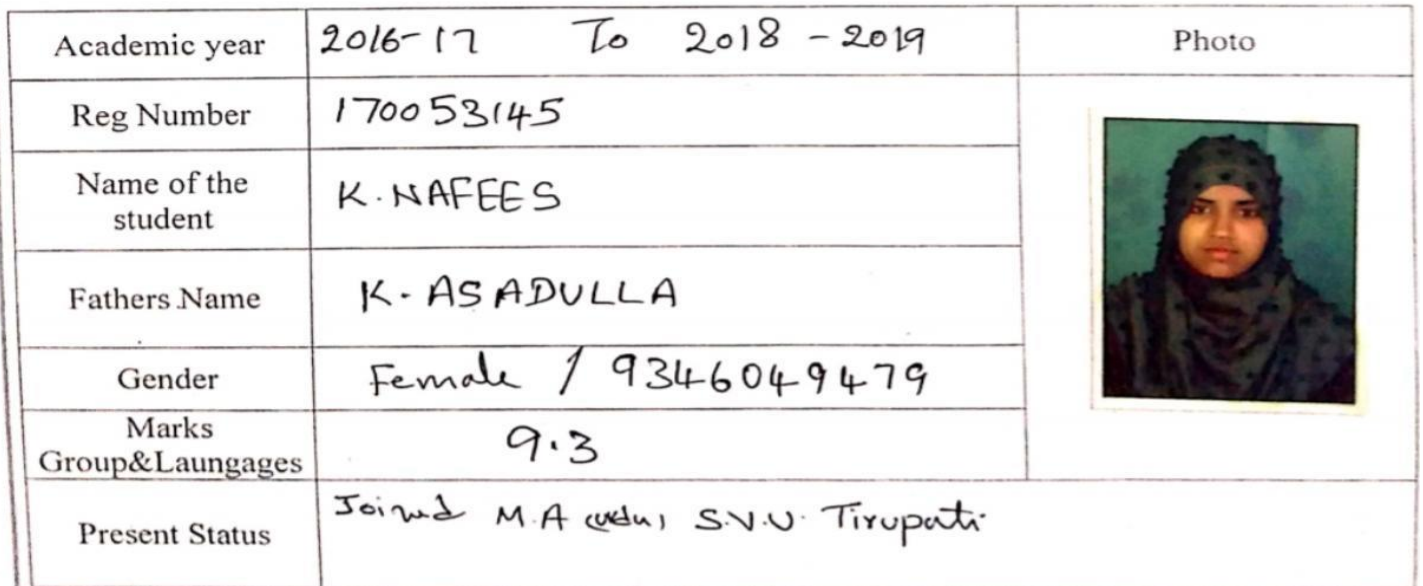 Academic year 2016-17 To 2018-2019 Photo
Reg Number 170053145
Name of the
student
K. NAFEES
Fathers Name K. ASADULLA
Gender Female / 9346049479
Marks
Group&Laungages
9.3
Present Status Joined M.A (urdu) S.V.U. Tirupati